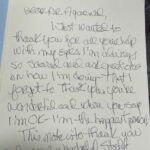 Dear Dr Agarwal,
I just wanted to
thank you for all your help
with my eyes I'm always
so scared and ask questions
on how I'm doing that I
forget to thank you. You're
wonderful and when you say
I'm OK - I'm the happiest person
This note is to thank you